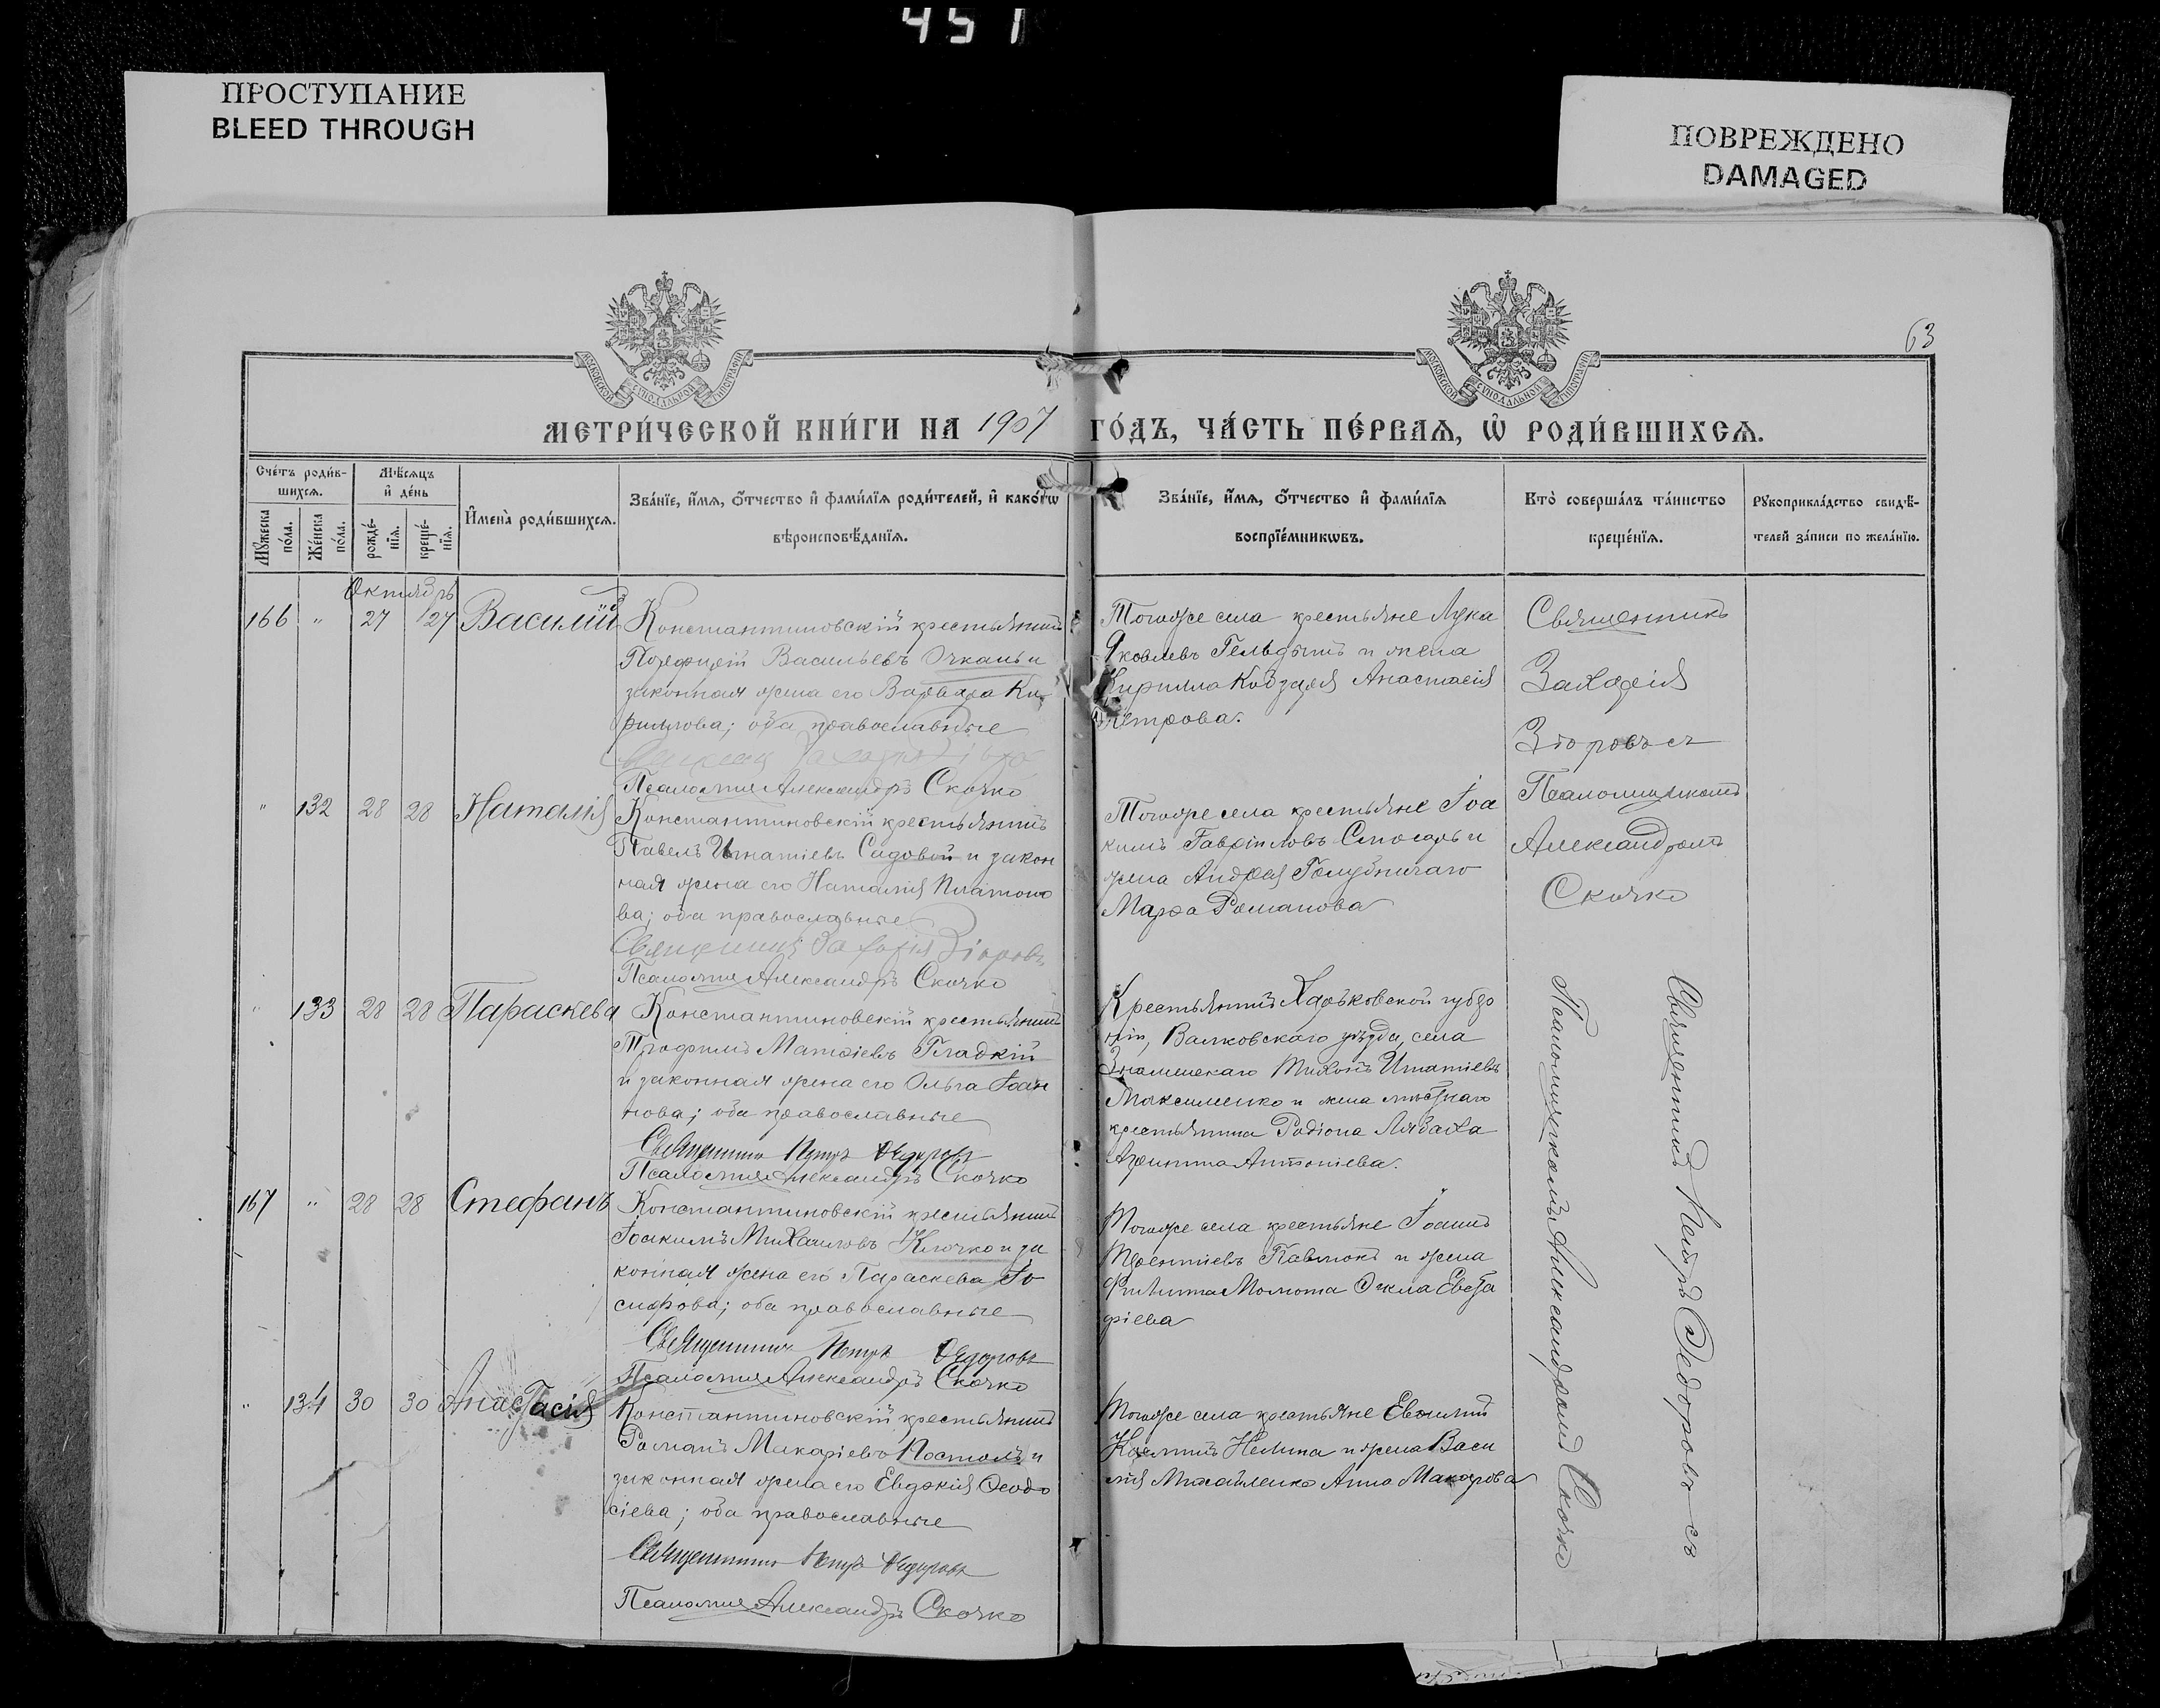 451
ПРОСТУПАНИЕ
BLEED THROUGH
ПОВРЕЖДЕНО
DAMAGED
63
МОСКОВСКОЙ СѴНОДАЛЬНОЙ ТИПОГРАФІИ
МОСКОВСКОЙ СѴНОДАЛЬНОЙ ТИПОГРАФІИ
МЕТРИ́ЧЕСКОЙ КНИ́ГИ НА 1907 ГО́ДЪ, ЧА́СТЬ ПЕ́РВАЯ, Ѡ҆ РОДИ́ВШИХСЯ.
Сче́тъ роди́в-
шихся.
Мѣ́сяцъ
и҆ де́нь
Мꙋ́жеска по́ла.
Же́нска по́ла.
рожде́-
нїя.
креще́-
нїя.
И҆мена̀ роди́вшихся.
Зва́нїе, и҆́мя, ѻ҆́тчество и҆ фами́лїя роди́телей, и҆ како́гѡ
вѣроисповѣ́данїя.
Зва́нїе, и҆́мя, ѻ҆́тчество и҆ фами́лїя
воспрїе́мникѡвъ.
Кто̀ соверша́лъ та́инство
креще́нїя.
Рꙋкоприкла́дство свидѣ́-
телей за́писи по жела́нїю.
Октябрь
166 " 27 27 Василій
Константиновскій крестьянинъ
Порфирій Васильевъ Очкань и
законная жена его Варвара Ки-
риллова; оба православные
Псаломщ. Александръ Скочко
Тогоже села крестьяне Лука
Яковлевъ Гельдышъ и жена
Кирилла Кобзаря Анастасія
Петрова.
Священникъ
Захарія
Згоровъ съ
Псаломщикомъ
Александромъ
Скочко
" 132 28 28 Наталія
Константиновскій крестьянинъ
Павелъ Игнатіевъ Садовой и закон
ная жена его Наталія Платоно
ва; оба православные
Священникъ Захарія Згоровъ
Псаломщ. Александръ Скочко
Тогоже села крестьяне Іоа
кимъ Гавріиловъ Слюсарь и
жена Андрея Голубничаго
Марѳа Романова
" 133 28 28 Параскева
Константиновскій крестьянинъ
Трофимъ Матѳіевъ Гладкій
и законная жена его Ольга Іоан
нова; оба православные
Священникъ Петръ Ѳедоровъ
Псаломщ. Александръ Скочко
Крестьянинъ Харьковской губер
ніи, Валковскаго уѣзда, села
Знаменскаго Тихонъ Игнатіевъ
Максименко и жена мѣстнаго
крестьянина Родіона Лябаха
Антоніева.
Священникъ Петръ Ѳедоровъ съ
Псаломщикомъ Александромъ Скочко
167 " 28 28 Стефанъ
Константиновскій крестьянинъ
Іоакимъ Михаиловъ Клочко и за
конная жена его Параскева Іо
сифова; оба православные
Священникъ Петръ Ѳедоровъ
Псаломщ. Александръ Скочко
Тогоже села крестьяне Іоаннъ
Терентіевъ Павлюкъ и жена
Филиппа Момота Ѳекла Евста
фіева
" 134 30 30 Анастасія
Константиновскій крестьянинъ
Романъ Макаріевъ Постолъ и
законная жена его Евдокія Ѳеодо
сіева; оба православные
Священникъ Петръ Ѳедоровъ
Псаломщ. Александръ Скочко
Тогоже села крестьяне Евѳимій
Нелипа и жена Васи
лія Михайленко Анна Макарова